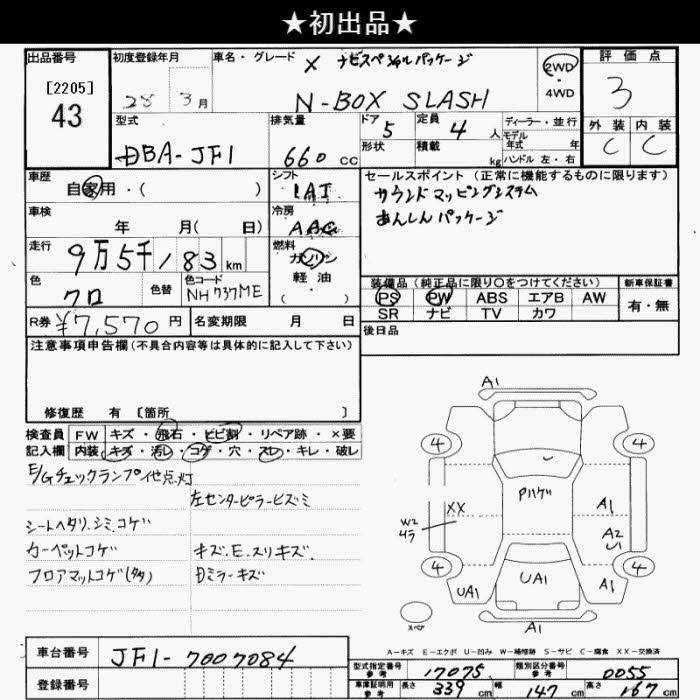 ★初出品★
出品番号
[2205]
43
初度登録年月
28 3月
車名・グレード
X ナビスペシャルパッケージ
N-BOX SLASH
2WD
・
4WD
評価点
3
外装 内装
C C
型式
DBA-JF1
排気量
660 cc
ドア
5
形状
定員
4 人
積載
kg
ディーラー・並行
モデル
年式 年
ハンドル 左・右
車歴
自家用・( )
シフト
IAT
セールスポイント (正常に機能するものに限ります)
サウンドマッピングシステム
あんしんパッケージ
車検
年 月( 日)
冷房
AAC
走行
9万5千183 km
燃料
ガソリン
軽油
( )
色
クロ
色替
色コード
NH737ME
装備品 (純正品に限り○をつけてください)
PS PW ABS エアB AW
SR ナビ TV カワ
新車保証書
有・無
R券 ¥7,570 円
名変期限 月 日
後日品
注意事項申告欄(不具合内容等は具体的に記入して下さい)
修復歴 有 [箇所 ]
検査員 FW キズ・飛石・ヒビ割・リペア跡・×要
記入欄 内装 キズ・汚レ・コゲ・穴・スレ・キレ・破レ
E/Gチェックランプ他点灯
左センターピラーヒズミ
シートヘタリ.シミ.コゲ
カーペットコゲ
キズ.E.スリキズ.
フロアマットコゲ(多)
Dミラーキズ
A1
4 4
Pハゲ
XX
W2
A1
A2
U1
4 4
UA1
UA1
A1
スペア
A1
A-キズ E-エクボ U-凹み W-補修跡 S-サビ C-腐食 XX-交換済
車台番号 JF1-7007084
登録番号
型式指定番号
参考
17075
類別区分番号
参考
0055
車庫証明用
参考
長さ 339 cm 幅 147 cm 高さ 167 cm